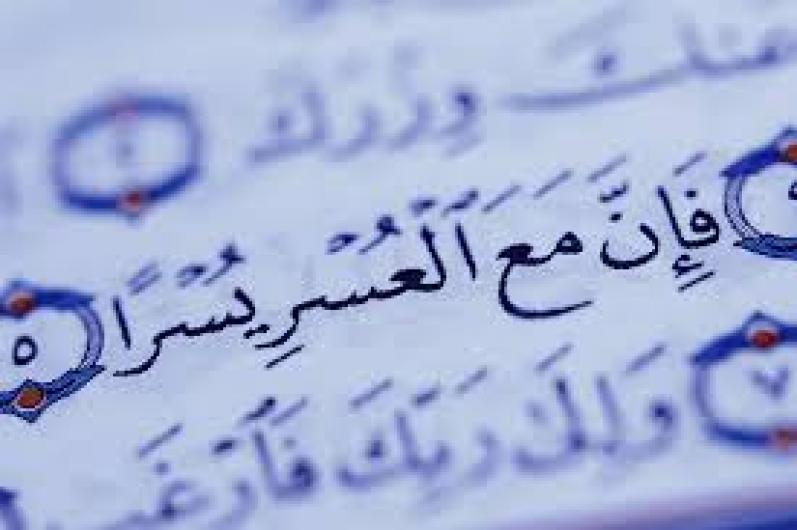 عنك وزرك
فَإِنَّ مَعَ ٱلْعُسْرِ يُسْرًا ٥
٧ وَإِلَىٰ رَبِّكَ فَٱرْغَب